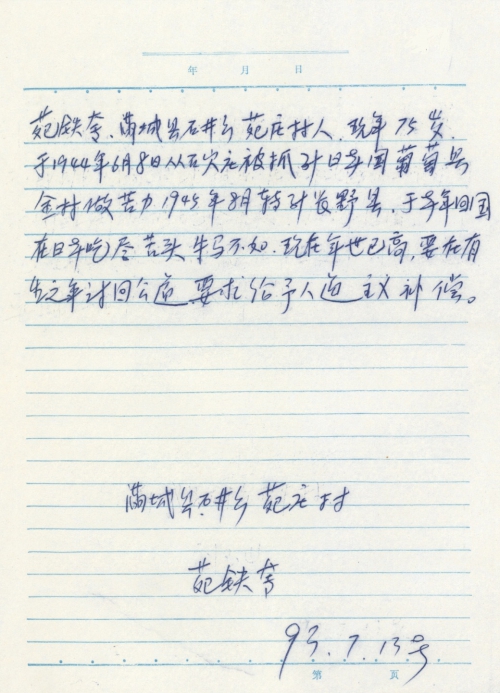 年 月 日
苑铁夸、满城县石井乡苑庄村人、现年75岁、
于1944年6月8日从石家庄被抓到日本国葡萄县
金村做苦力1945年8月转到长野县、于本年回国
在日本吃尽苦头牛马不如、现在年世已高,要在有
生之年讨回公道,要求给予人道主义补偿。
满城县石井乡苑庄村
苑铁
93.7.13号
第 页